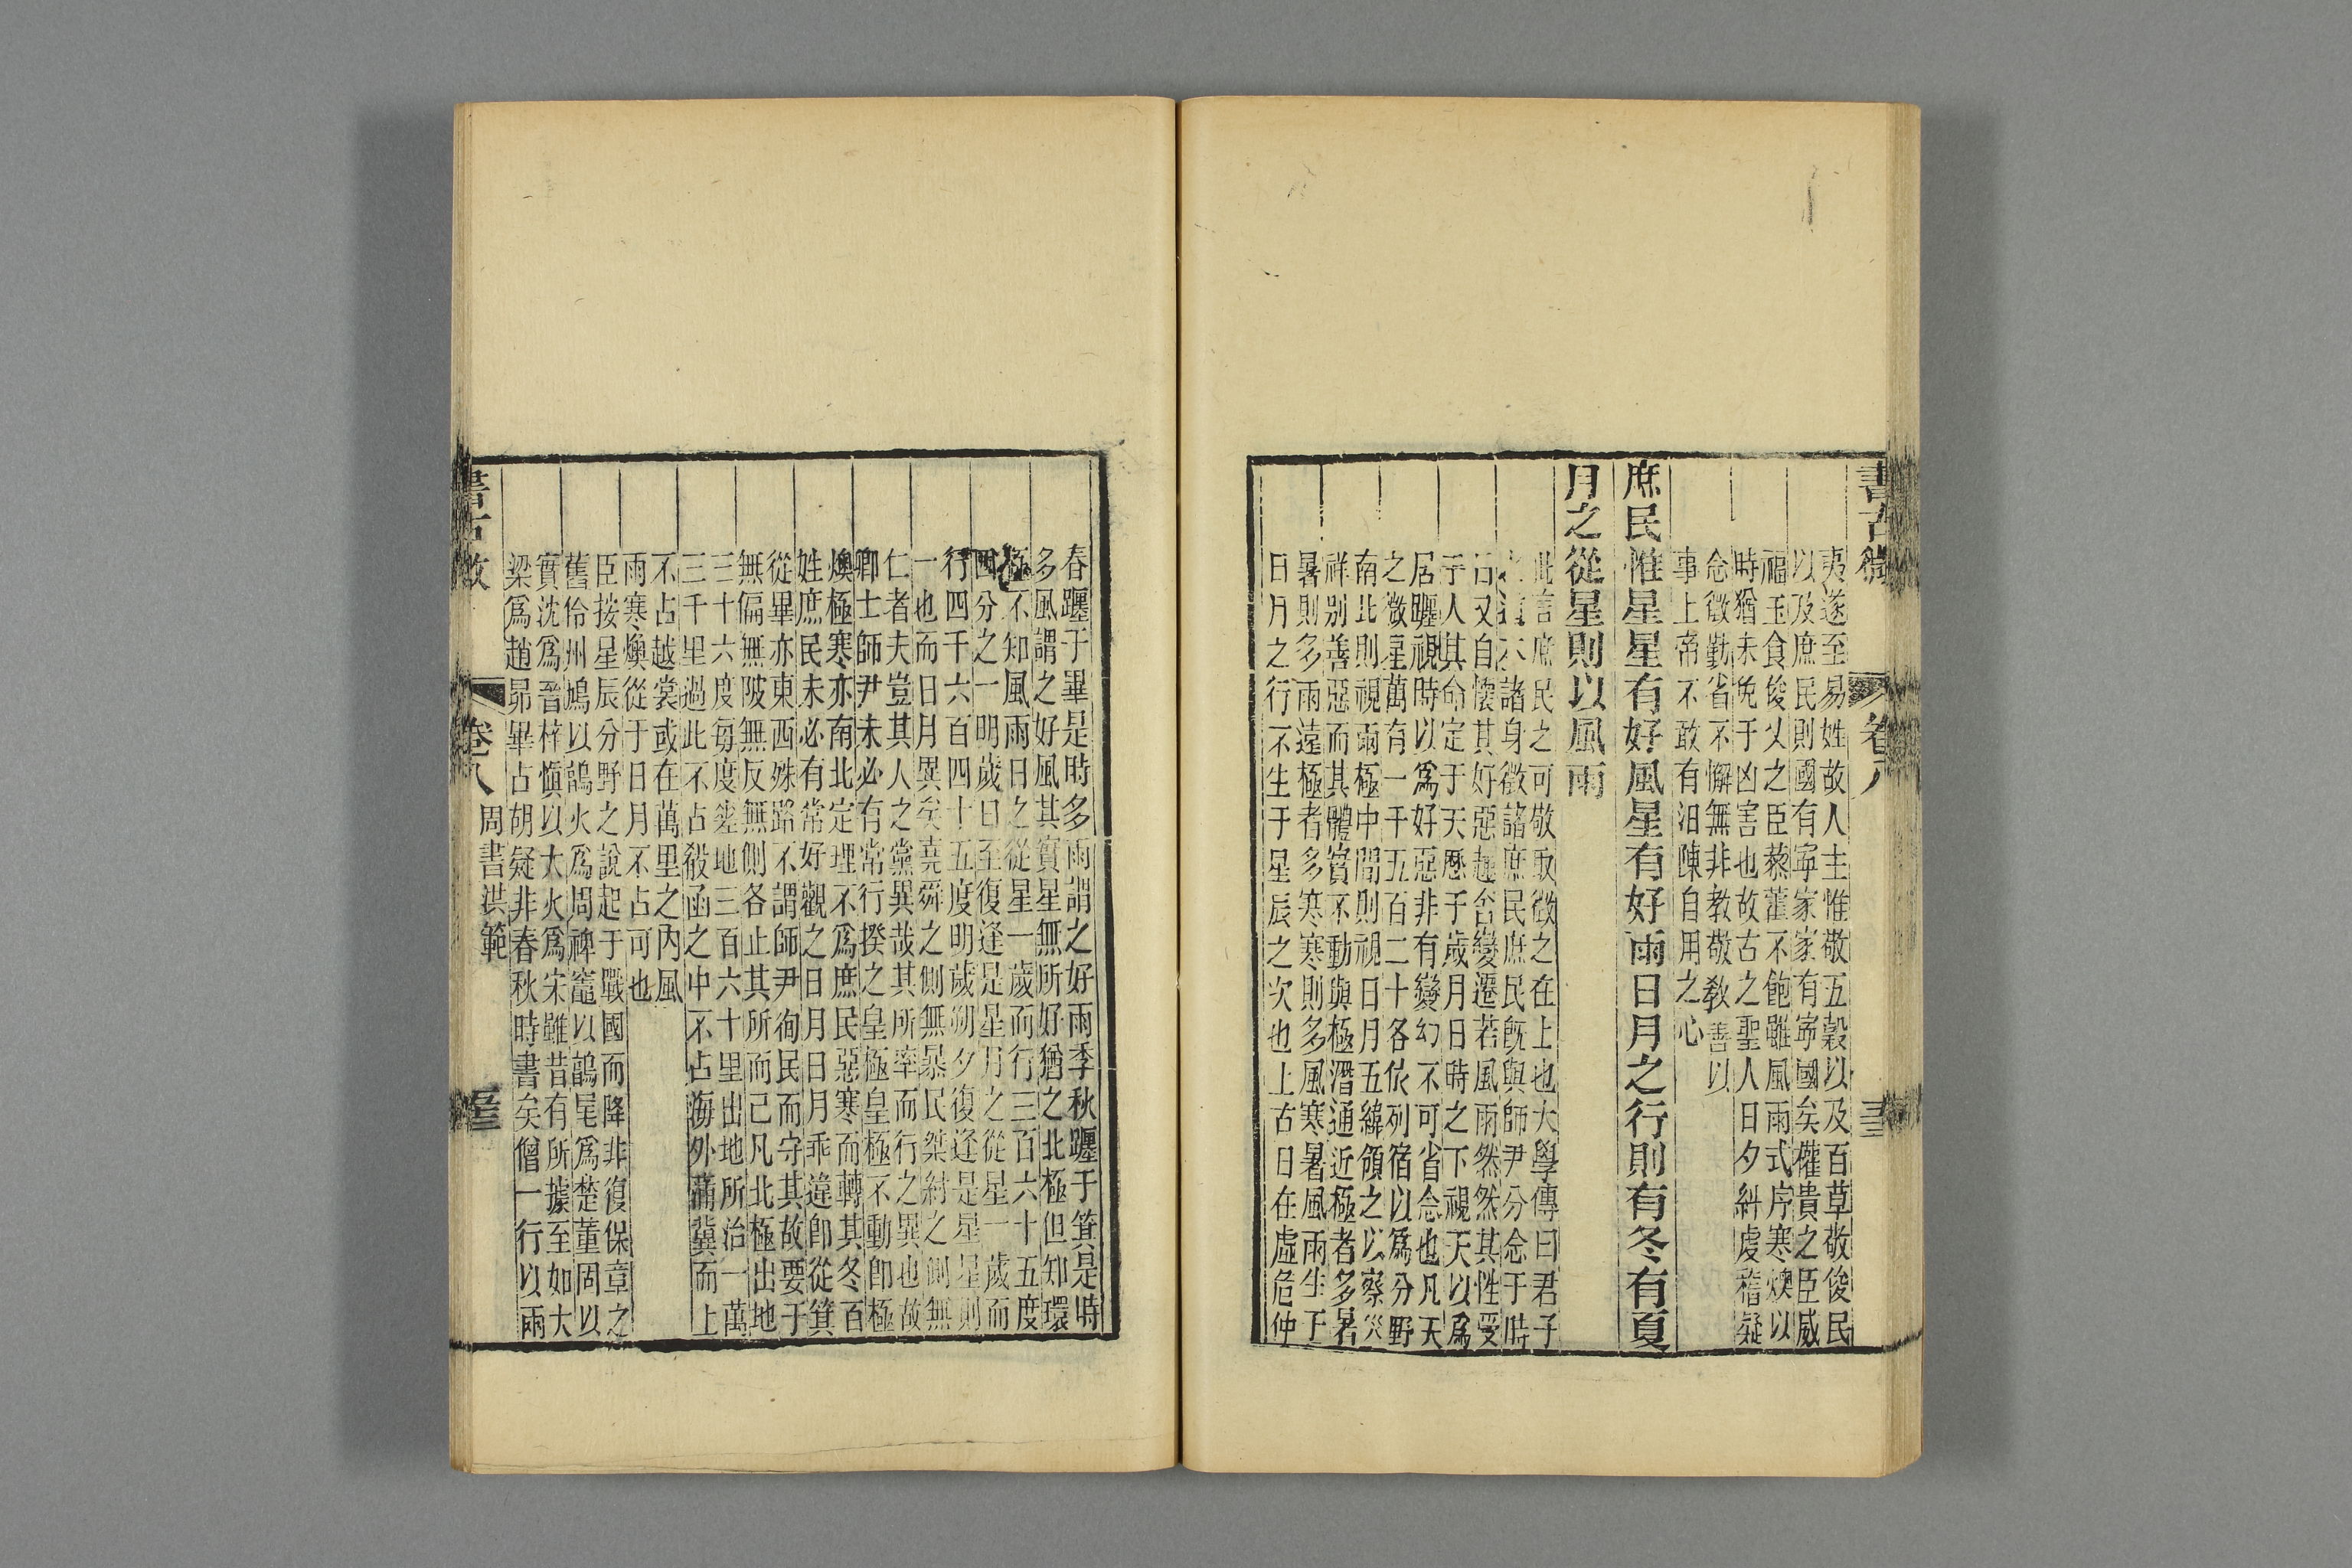 書古微
卷八
夷遂至易姓故人主惟敬五穀以及百草敬俊民
以及庶民則國有寧家家有寧國矣權貴之臣威
福玉食俊乂之臣藜藿不飽雖風雨式序寒燠以
時猶未免于凶害也故古之聖人日夕糾虔稽疑
念徵勤省不懈無非教敬敎善以
事上帝不敢有汨陳自用之心
庶民惟星星有好風星有好雨日月之行則有冬有夏
月之從星則以風雨
此言庶民之可敬取徵之在上也大學傳曰君子
諸身徵諸庶民庶民旣與師尹分念于時
又自懷其好惡趨舍變遷若風雨然然其性受
于人其命定于天懸于歲月日時之下視天以爲
居躔視時以爲好惡非有變幻不可省念也凡天
之微星萬有一千五百二十各依列宿以爲分野
南北則視兩極中間則視日月五緯領之以察災
祥別善惡而其體實不動與極潛通近極者多暑
暑則多雨遠極者多寒寒則多風寒暑風雨生于
日月之行不生于星辰之次也上古日在虛危仲
春躔于畢是時多雨謂之好雨季秋躔于箕是時
多風謂之好風其實星無所好猶之北極但知環
極不知風雨日之從星一歲而行三百六十五度
四分之一明歲日至復逢是星月之從星一歲而
行四千六百四十五度明歲朔夕復逢是星星則
一也而日月異矣堯舜之側無暴民桀紂之側無
仁者夫豈其人之黨異哉其所率而行之異也故
卿士師尹未必有常行揆之皇極皇極不動卽極
燠極寒亦南北定理不爲庶民惡寒而轉其冬百
姓庶民未必有常好觀之日月日月乖違卽從箕
從畢亦東西殊路不謂師尹徇民而守其故要于
無偏無陂無反無側各止其所而己凡北極出地
三十六度每度差地三百六十里出地所治一萬
三千里過此不占殽函之中不占海外薊冀而上
不占越裳或在萬里之內風
雨寒燠從于日月不占可也
臣按星辰分野之說起于戰國而降非復保章之
舊伶州鳩以鶉火爲周裨竈以鶉尾爲楚董因以
實沈爲晉梓愼以大火爲宋雖昔有所據至如大
梁爲趙昴畢占胡疑非春秋時書矣僧一行以兩
書古微
卷八
周書洪範